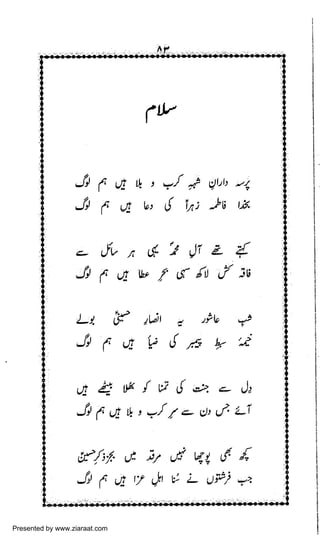 ۸۳
سلام
پرسہ دارانِ شہِ کرب و بلا ہیں ہم لوگ
بخدا فاطمہ زہراؑ کی دعا ہیں ہم لوگ
کہتے تھے آلِ محمدؐ یہی ہر سائل سے
فاقہ کش لاکھ سہی بحرِ عطا ہیں ہم لوگ
شبِ عاشور یہ انصارِ حسینیؑ بولے
خیمۂ سبطِ پیمبر کی ضیا ہیں ہم لوگ
دل سے جنت کی تمنا کو بھلا بیٹھے ہیں
آئے جس دن سے سرِ کرب و بلا ہیں ہم لوگ
کچھ بھی پوچھا نہیں مرقد میں بجز ذکرِ حسینؑ
جب فرشتوں نے سُنا اہلِ عزا ہیں ہم لوگ
Presented by www.ziaraat.com